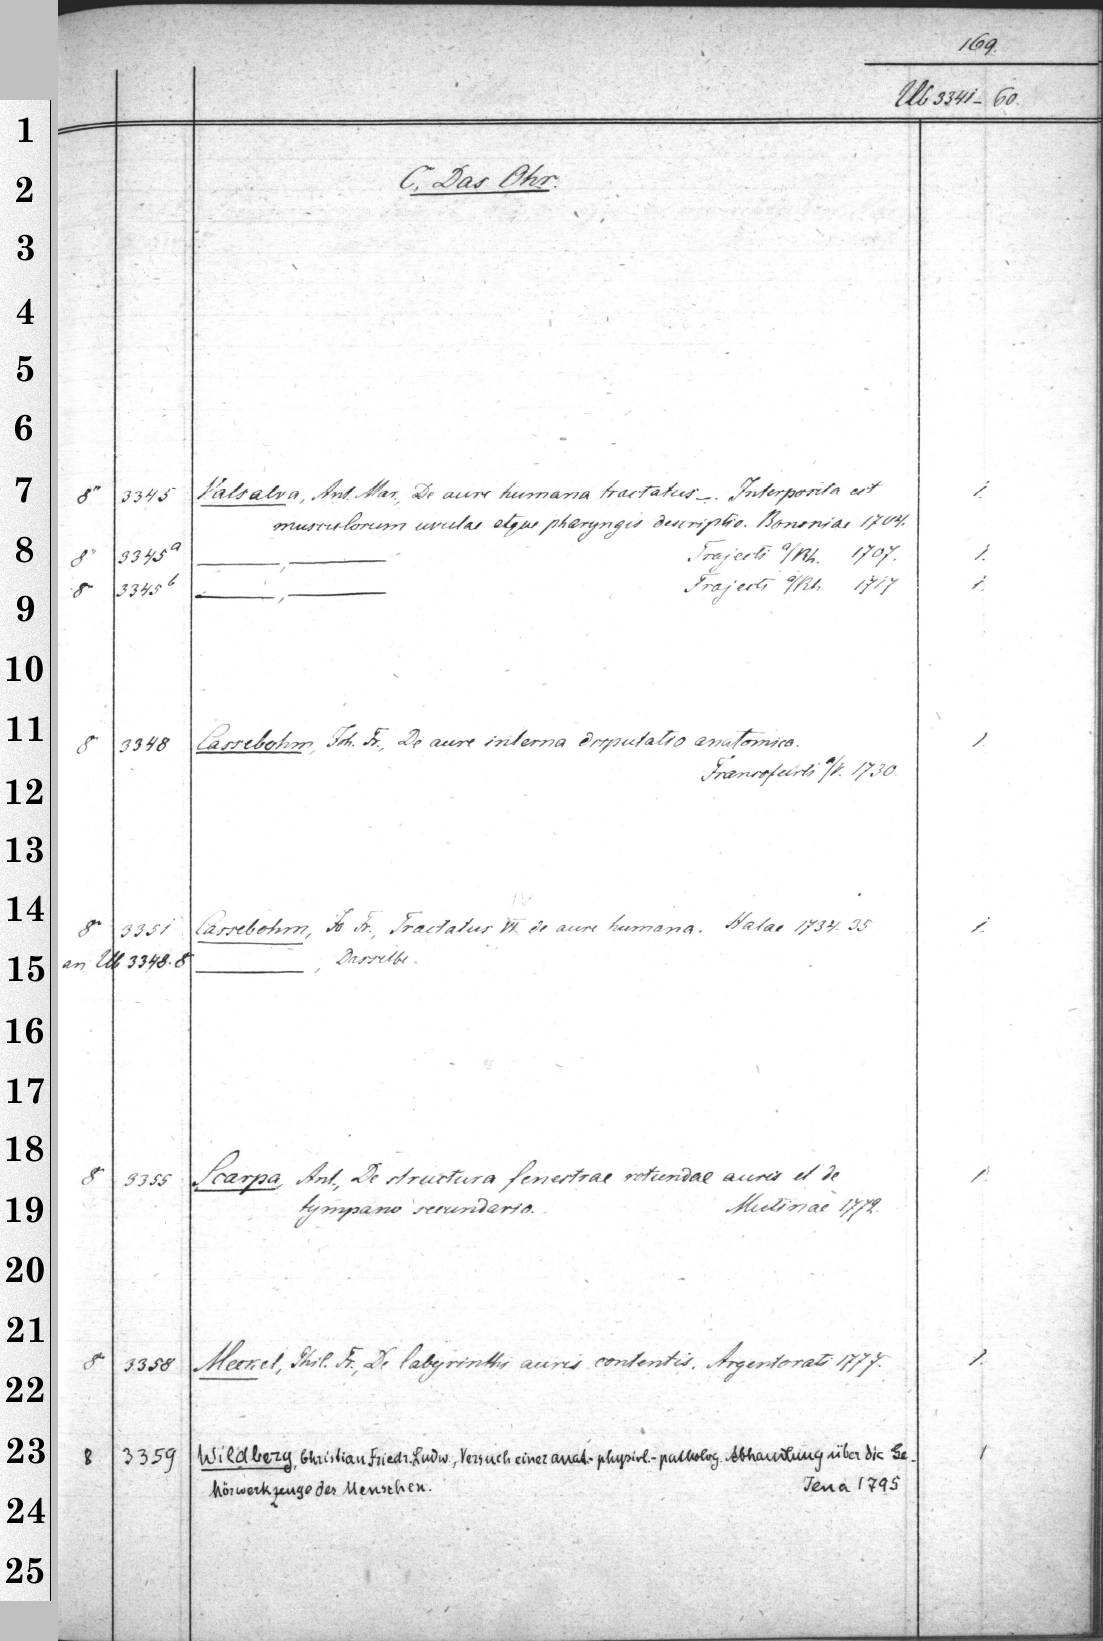 169.
Ub 3341-60.
1
2 C. Das Ohr.
3
4
5
6
7 8° 3345 Valsalva, Ant. Mar., De aure humana tractatus —. Interposita est 1.
musculorum uvulae atque pharyngis descriptio. Bononiae 1704.
8 8° 3345a ——, —— Trajecti a/Rh. 1707. 1.
9 8 3345b ——, —— Trajecti a/Rh. 1717 1.
10
11 8 3348 Cassebohm, Joh. Fr., De aure interna disputatio anatomica. 1
12 Francofurti a/V. 1730.
13
14 8° 3351 Cassebohm, Jo Fr., Tractatus VI de aure humana. Halae 1734. 35 1.
15 an Ub 3348. 8 ——, Dasselbe.
16
17
18 8 3355 Scarpa, Ant., De structura fenestrae rotundae auris et de 1.
19 tympano secundario. Mutinae 1772.
20
21
22 8 3358 Meckel, Phil. Fr., De labyrinthi auris contentis. Argentorati 1777. 1.
23 8 3359 Wildberg, Christian Friedr. Ludw., Versuch einer anat.-physiol.-patholog. Abhandlung über die Ge- 1
24 hörwerkzeuge des Menschen. Jena 1795
25